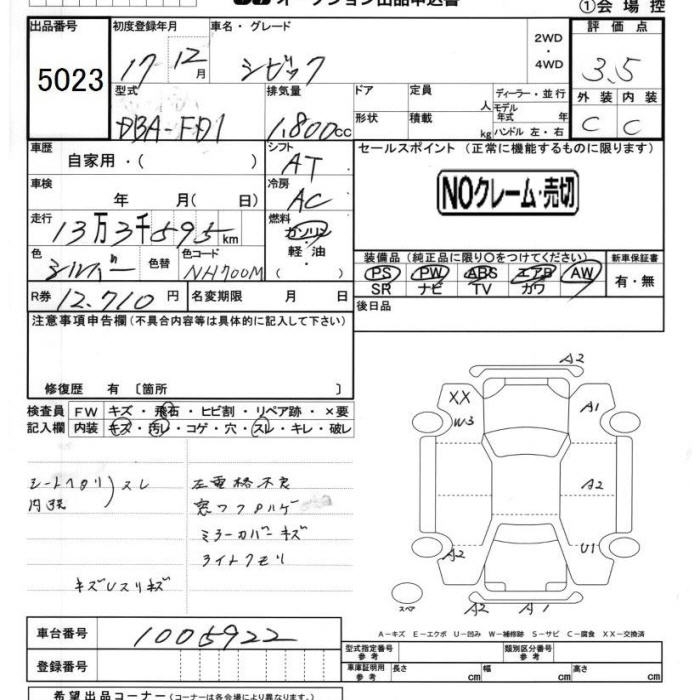 オークション出品申込書
①会場控
出品番号
5023
初度登録年月
17 12月
車名・グレード
シビック
2WD
・
4WD
評価点
3.5
外装 内装
C C
型式
DBA-FD1
排気量
1,800cc
ドア
形状
定員 人
積載 kg
ディーラー・並行
モデル年式 年
ハンドル 左・右
車歴
自家用・( )
シフト
AT
セールスポイント (正常に機能するものに限ります)
NOクレーム・売切
車検
年 月( 日)
冷房
AC
走行
13万3千595km
燃料
ガソリン
軽油
( )
色
シルバー
色替
色コード
NH700M
装備品 (純正品に限り○をつけてください)
PS PW ABS エアB AW
SR ナビ TV カワ
新車保証書
有・無
R券
12,710円
名変期限 月 日
後日品
注意事項申告欄 (不具合内容等は具体的に記入して下さい)
修復歴 有 〔箇所 〕
検査員
記入欄
FW キズ・飛石・ヒビ割・リペア跡・×要
内装 キズ・汚レ・コゲ・穴・スレ・キレ・破レ
シートヘタリ
内張
スレ
左電格不良
ミラーカバーキズ
ライトクモリ
A2
XX
W3
A1
A2
A2
U1
A2 A1
スペア
A－キズ E－エクボ U－凹み W－補修跡 S－サビ C－腐食 XX－交換済
車台番号
1005922
登録番号
型式指定番号
参考
類別区分番号
参考
車庫証明用
参考
長さ cm 幅 cm 高さ cm
希望出品コーナー (コーナーは各会場により異なります)